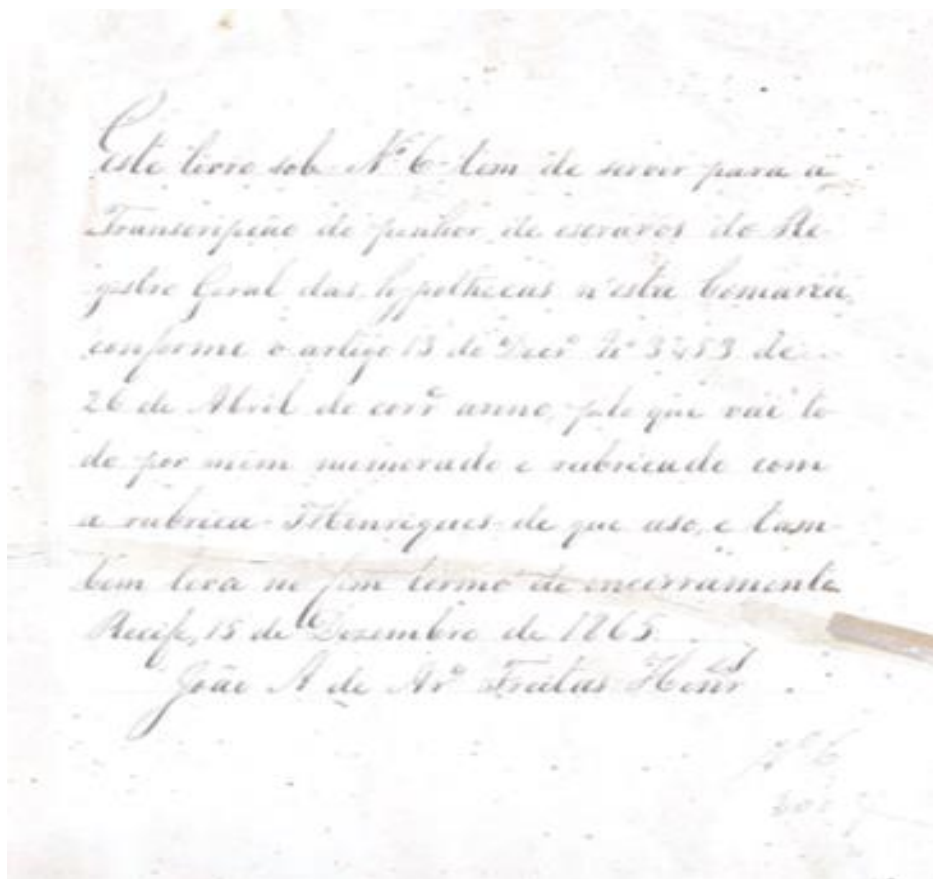 Este livro sob Nº 6 tem de servir para a
Transcripção do penhor de escravos do Re-
gistro Geral das hypothecas n'esta Comarca,
conforme o artigo 13 do Decrº Nº 3453 de
26 de Abril do corrº anno, pelo que vai to-
do por mim numerado e rubricado com
a rubrica - FHenriques - de que uso, e tam-
bem leva no fim termo de encerramento
Recife, 15 de Dezembro de 1865.
João A de Arº Freitas Henrˢ